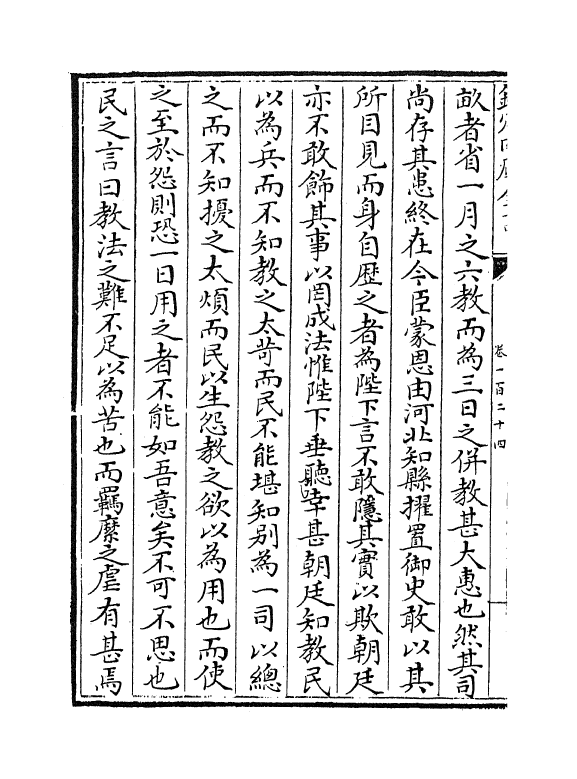 卷一百二十四
畝者省一月之六教而為三日之併教甚大惠也然其司
尚存其患終在今臣蒙恩由河北知縣擢置御史敢以其
所目見而身自歴之者為陛下言不敢隱其實以欺朝廷
亦不敢飾其事以罔成法惟陛下垂聽幸甚朝廷知教民
以為兵而不知教之太苛而民不能堪知别為一司以總
之而不知擾之太煩而民以生怨教之欲以為用也而使
之至於怨則恐一日用之者不能如吾意矣不可不思也
民之言曰教法之難不足以為苦也而羈縻之虐有甚焉